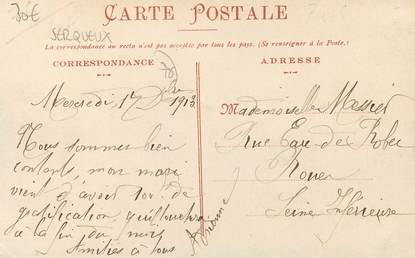 30€
SERQUEUX
CARTE POSTALE
La correspondance au recto n'est pas acceptée par tous les pays. (Se renseigner à la Poste.)
CORRESPONDANCE
ADRESSE
Mercredi 17 Xbre 1913
Nous sommes bien
contents, mon mari
vient d'avoir 10f. de
gratification, qu'il touchera
à la fin du mois
Amitiés à tous
Mademoiselle Messier
Rue Eau de Robec
Rouen
Seine Inférieure